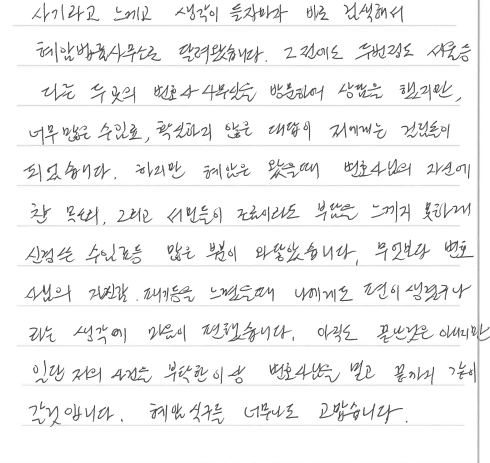 사기라고 느끼고 생각이 들자마자 바로 검색해서
혜암법률사무소로 달려왔습니다. 그전에도 두번정도 서울등
다른 두곳의 변호사 사무실을 방문하여 상담을 했지만,
너무 많은 수임료, 확실하지 않은 대답이 저에게는 걸림돌이
되었습니다. 하지만 혜암은 왔을때 변호사님의 자신에
찬 목소리, 그리고 서민들이 조금이라도 부담을 느끼지 못하게
신경쓴 수임료등 많은 부분이 와닿았습니다. 무엇보다 변호
사님의 자신감. 패기등을 느꼈을때 나에게도 편이 생겼구나
라는 생각에 마음이 편했습니다. 아직도 끝난것은 아니지만
일단 저의 사건을 부탁한 이상 변호사님을 믿고 끝까지 같이
갈것 입니다. 혜암 식구들 너무나도 고맙습니다.